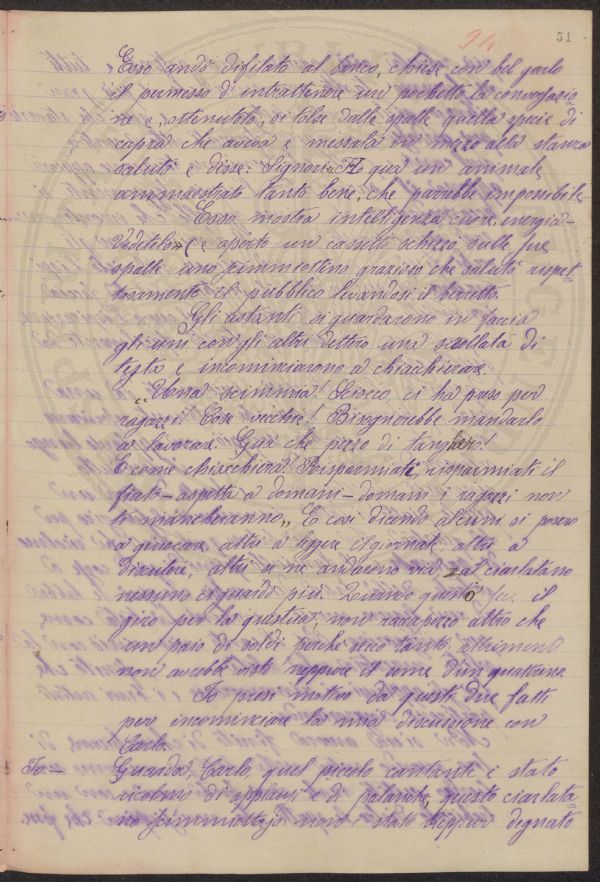 94 51
Esso andò difilato al banco, chiese con bel garbo
il permesso d'intrattenere un pochetto la conversazio-
ne e, ottenutolo, si tolse dalle spalle quella specie di
capra che aveva e messala in mezzo alla stanza
salutò e disse: Signori, Ho qua un animale
ammaestrato tanto bene, che parrebbe impossibile.
Esso mostra intelligenza cuore energia -
Vedetelo - (e aperto un cassetto schizzò sulle sue
spalle uno scimmiottino grazioso che salutò rispet-
tosamente il pubblico levandosi il berretto.
Gli astanti si guardarono in faccia
gli uni con gli altri dettero una scrollata di
testa e incominciarono a chiacchierare.
"Una scimmia! Sciocco, ci ha preso per
ragazzi! Cose vecchie! Bisognerebbe mandarlo
a lavorare. Guà che pezzo di tanghero!
E come chiacchiera! Risparmiati, risparmiati il
fiato - aspetta a domani - domani i ragazzi non
ti mancheranno,, E così dicendo alcuni si posero
a giuocare, altri a leggere il giornale altri a
discutere, altri se ne andarono via, al ciarlatano
nessuno ci guardò più. Quando questo fe' il
giro per la questua, non racapezzò altro che
un paio di soldi perchè seco tanto, altrimenti
non avrebbe visti neppure il nome d'un quattrino.
Io presi motivo da questi due fatti
per incominciare la mia discussione con
Carlo.
Io - Guarda, Carlo, quel piccolo cantante è stato
ricolmo di applausi e di palanche, questo ciarlata-
no scimmiottajo non è stato neppur degnato